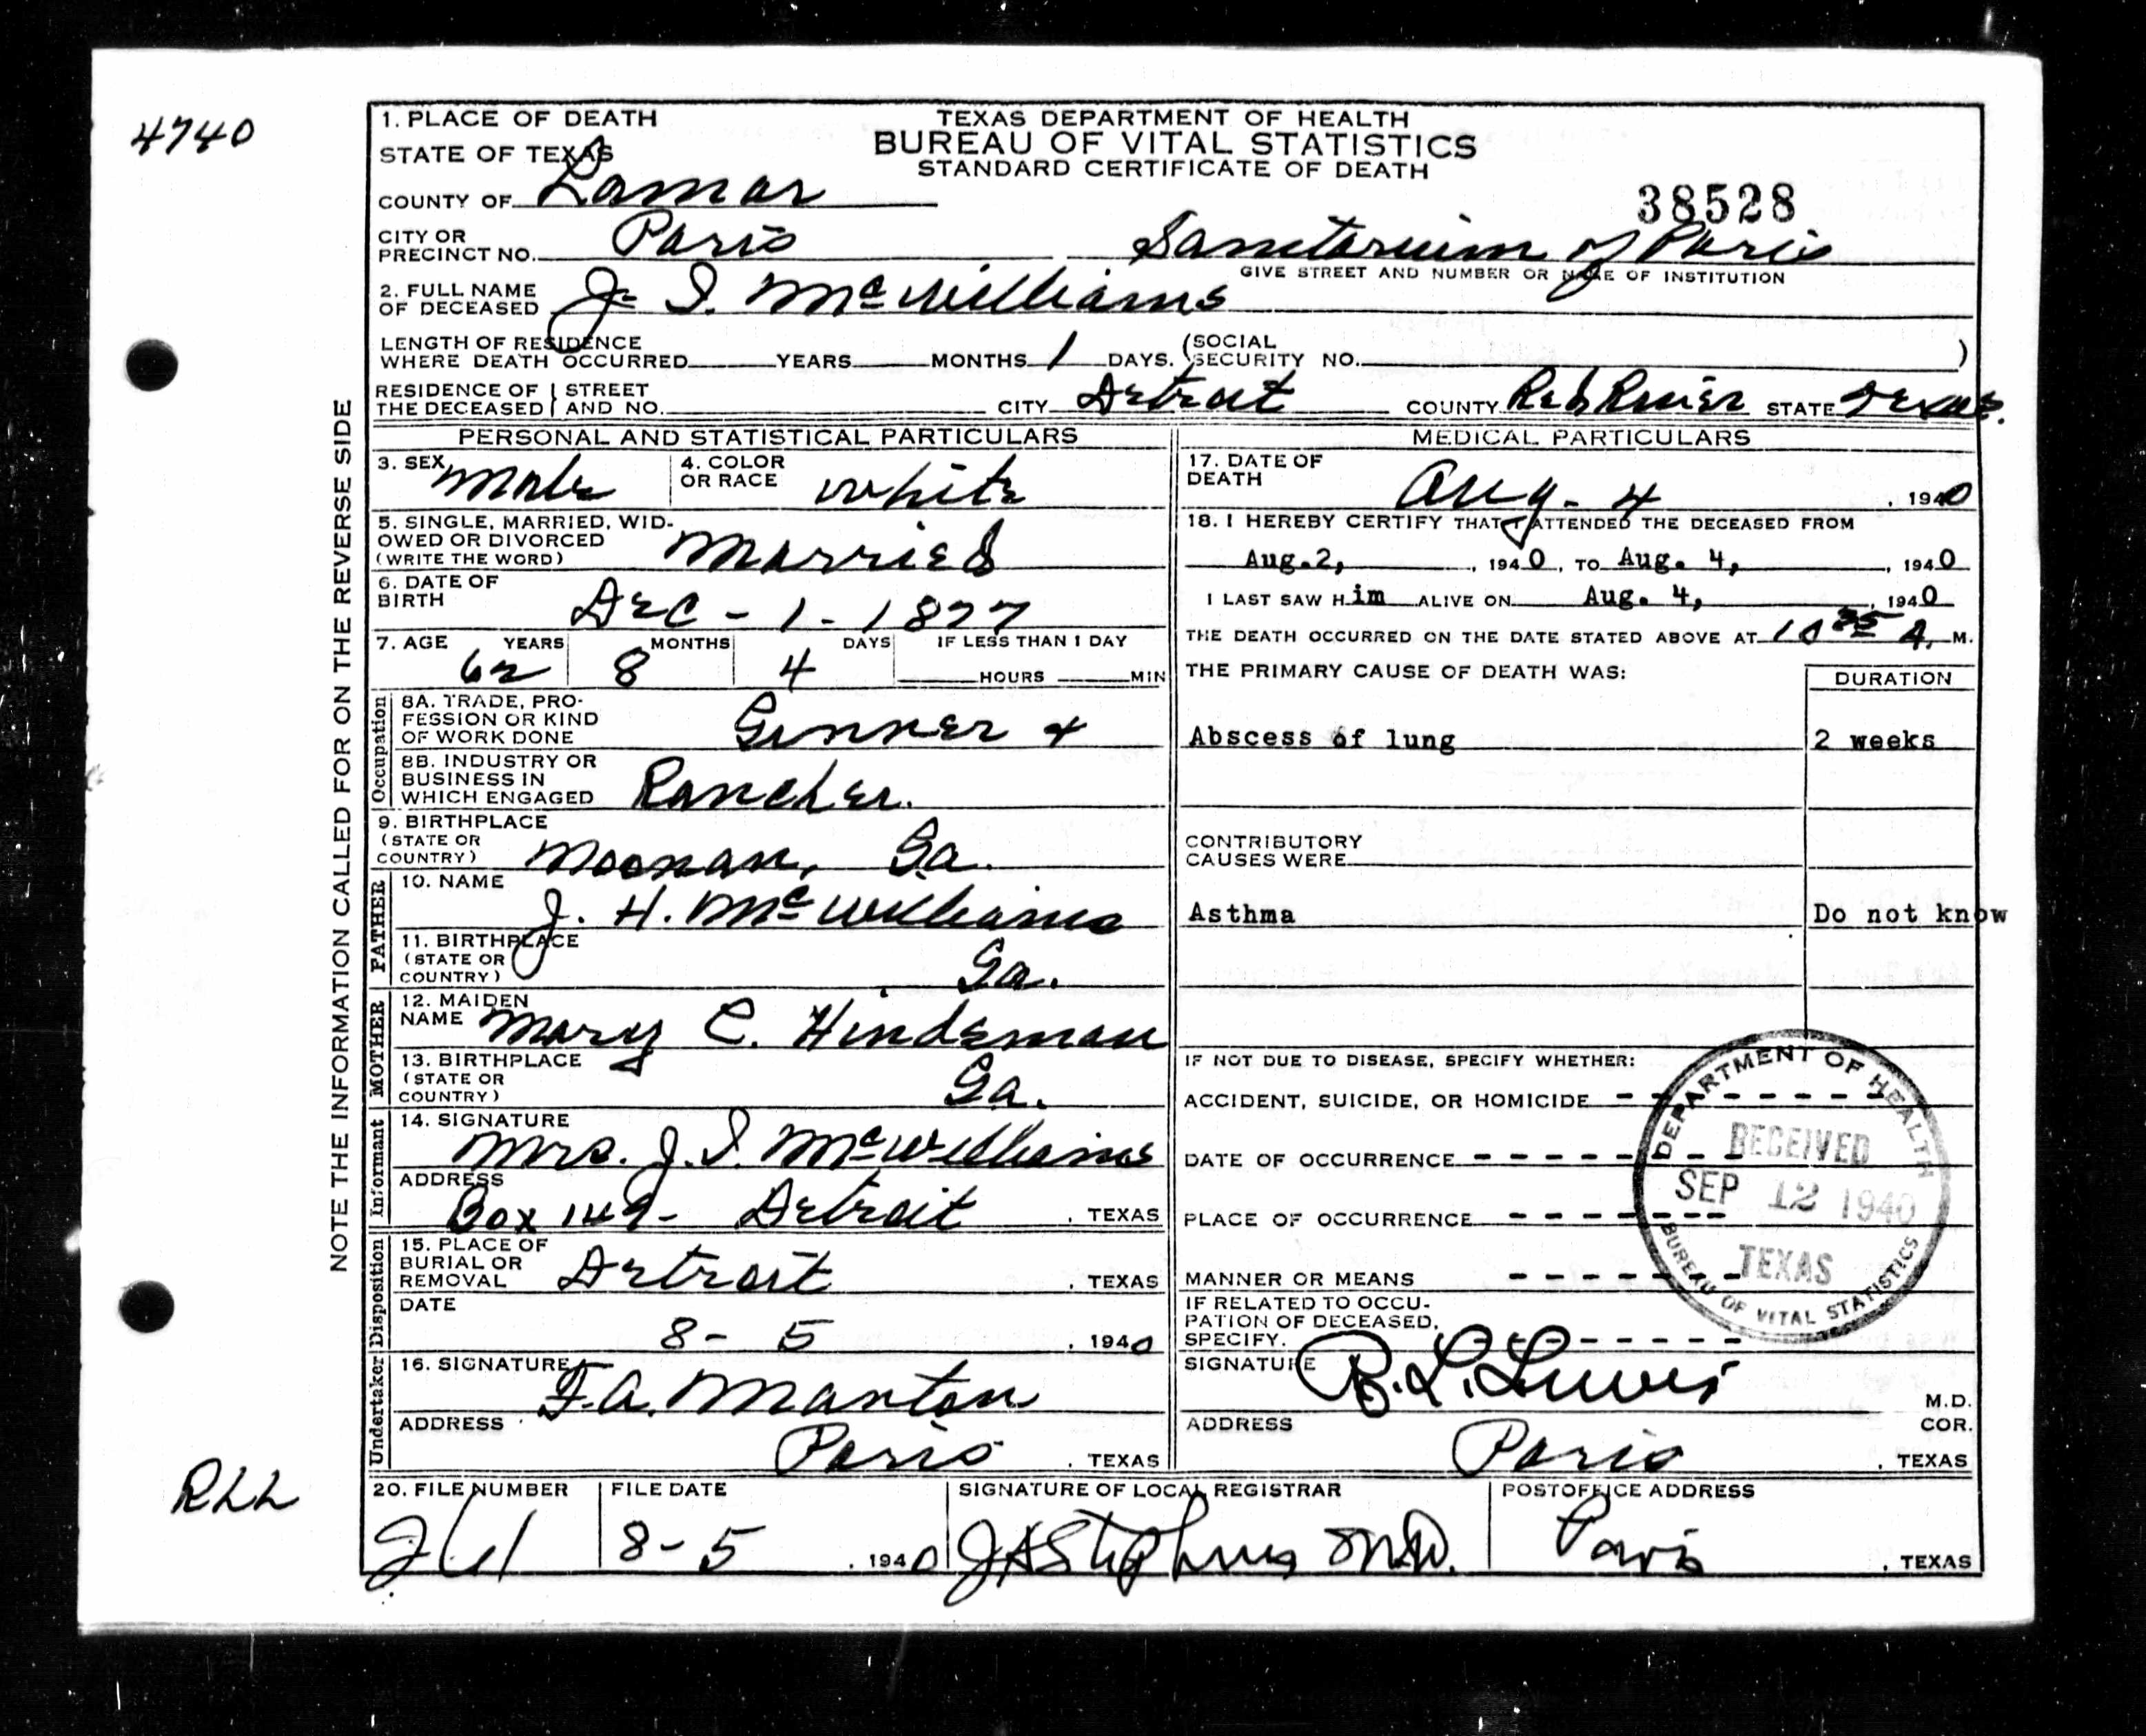 4740
1. PLACE OF DEATH
TEXAS DEPARTMENT OF HEALTH
BUREAU OF VITAL STATISTICS
STANDARD CERTIFICATE OF DEATH
STATE OF TEXAS
COUNTY OF Lamar
38528
CITY OR PRECINCT NO. Paris Sanitarium of Paris
GIVE STREET AND NUMBER OR NAME OF INSTITUTION
2. FULL NAME OF DECEASED J. I. McWilliams
LENGTH OF RESIDENCE WHERE DEATH OCCURRED YEARS MONTHS 1 DAYS. (SOCIAL SECURITY NO. )
RESIDENCE OF THE DECEASED STREET AND NO. CITY Detroit COUNTY Red River STATE Texas.
NOTE THE INFORMATION CALLED FOR ON THE REVERSE SIDE
PERSONAL AND STATISTICAL PARTICULARS
3. SEX Male 4. COLOR OR RACE White
5. SINGLE, MARRIED, WIDOWED OR DIVORCED (WRITE THE WORD) Married
6. DATE OF BIRTH Dec - 1 - 1877
7. AGE YEARS MONTHS DAYS IF LESS THAN 1 DAY
62 8 4 HOURS MIN
Occupation
8A. TRADE, PROFESSION OR KIND OF WORK DONE Ginner &
8B. INDUSTRY OR BUSINESS IN WHICH ENGAGED Rancher.
9. BIRTHPLACE (STATE OR COUNTRY) Moonan, Ga.
FATHER
10. NAME J. H. McWilliams
11. BIRTHPLACE (STATE OR COUNTRY) Ga.
MOTHER
12. MAIDEN NAME Mary C. Hindsman
13. BIRTHPLACE (STATE OR COUNTRY) Ga.
Informant
14. SIGNATURE Mrs. J. I. McWilliams
ADDRESS Box 149 - Detroit, TEXAS
Disposition
15. PLACE OF BURIAL OR REMOVAL Detroit, TEXAS
DATE 8 - 5, 1940
Undertaker
16. SIGNATURE F. A. Manton
ADDRESS Paris, TEXAS
MEDICAL PARTICULARS
17. DATE OF DEATH Aug. 4, 1940
18. I HEREBY CERTIFY THAT I ATTENDED THE DECEASED FROM
Aug. 2, , 1940, TO Aug. 4, , 1940
I LAST SAW Him ALIVE ON Aug. 4, , 1940
THE DEATH OCCURRED ON THE DATE STATED ABOVE AT 10 35 A. M.
THE PRIMARY CAUSE OF DEATH WAS: DURATION
Abscess of lung 2 weeks
CONTRIBUTORY CAUSES WERE
Asthma Do not know
IF NOT DUE TO DISEASE, SPECIFY WHETHER:
ACCIDENT, SUICIDE, OR HOMICIDE - - - - - - - -
DATE OF OCCURRENCE - - - - - - -
PLACE OF OCCURRENCE - - - - - - -
MANNER OR MEANS - - - - - - -
IF RELATED TO OCCUPATION OF DECEASED, SPECIFY. - - - - - - -
DEPARTMENT OF HEALTH
RECEIVED
SEP 12 1940
TEXAS
BUREAU OF VITAL STATISTICS
SIGNATURE B. L. Lewis M.D. COR.
ADDRESS Paris, TEXAS
RLL
20. FILE NUMBER FILE DATE SIGNATURE OF LOCAL REGISTRAR POSTOFFICE ADDRESS
261 8 - 5, 1940 J A Stephens M.D. Paris, TEXAS